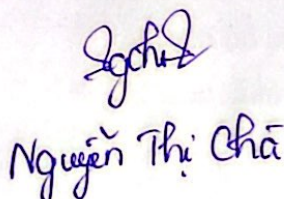 Nguyễn Thị Chà